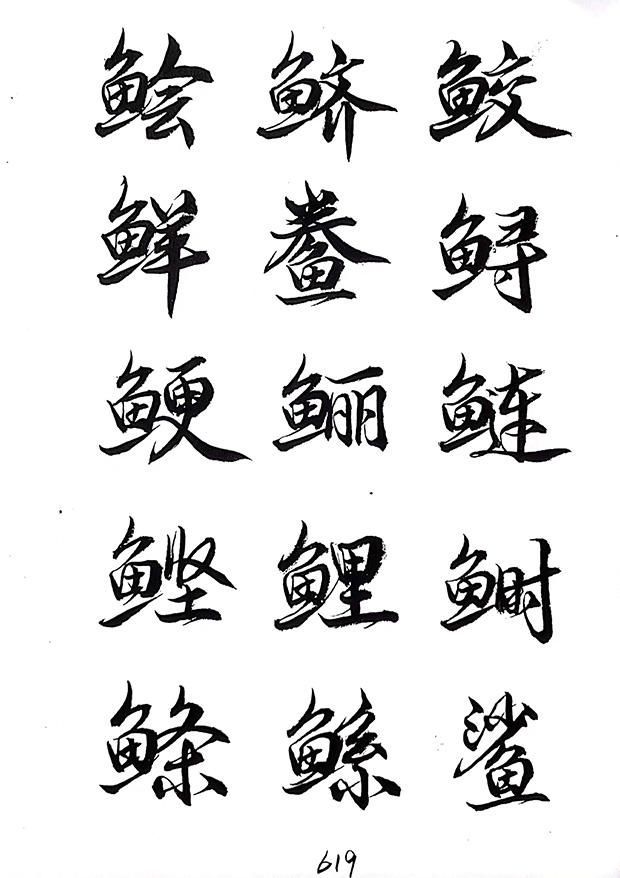 鲙 鲚 鲛
鲜 鲞 鲟
鲠 鲡 鲢
鲣 鲤 鲥
鲦 鲧 鲨
619